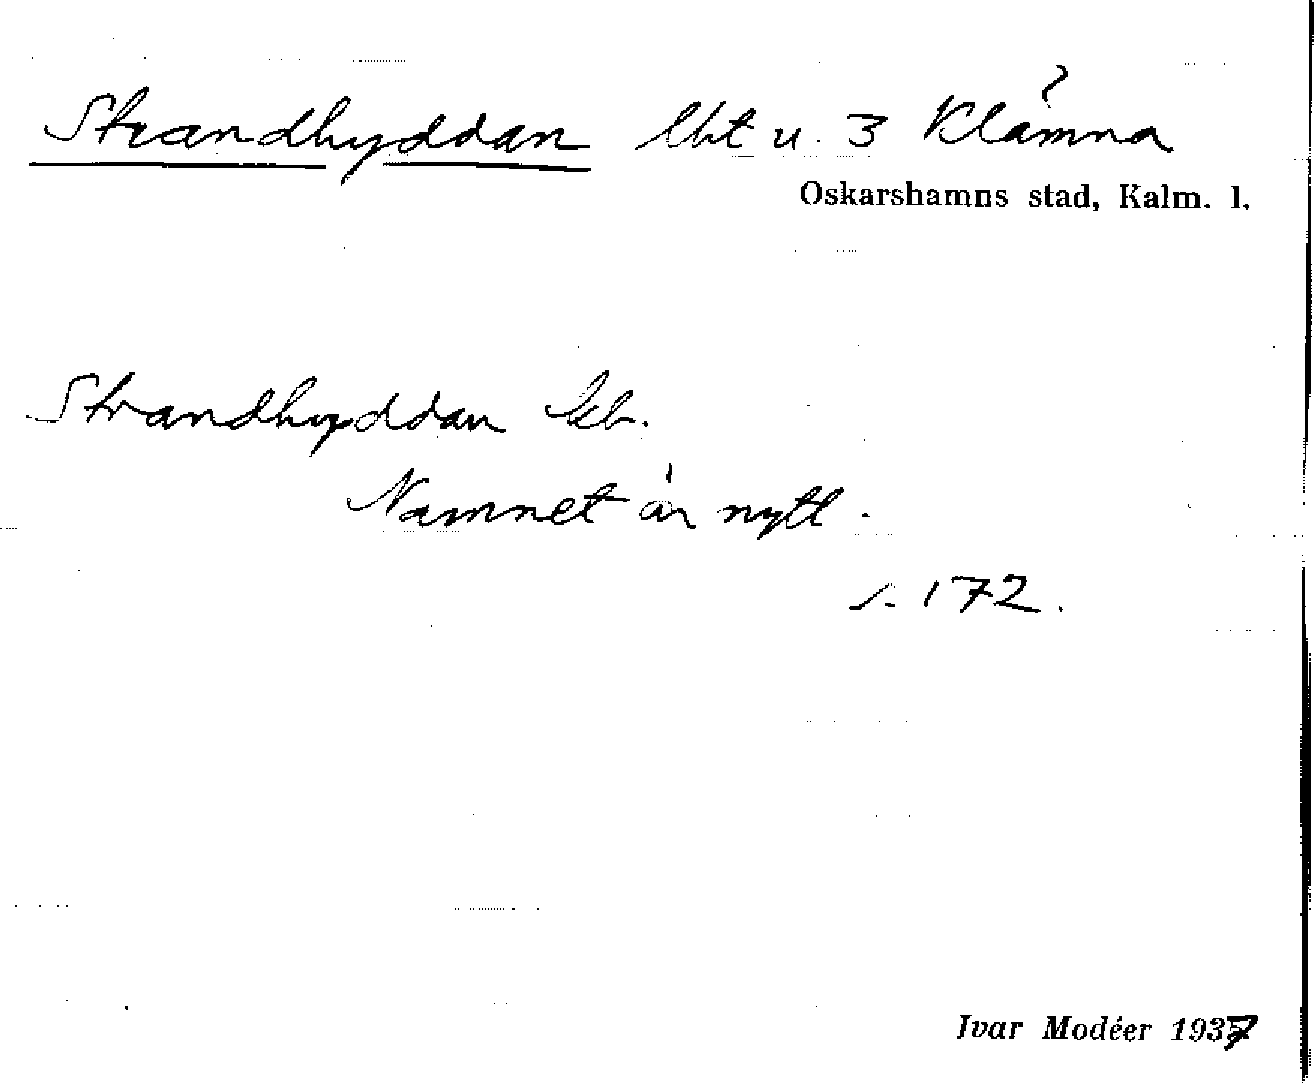 Strandhyddan lht u. 3 Klämna
Oskarshamns stad, Kalm. l.
Strandhyddan
Namnet är nytt.
s. 172.
Ivar Modéer 1937